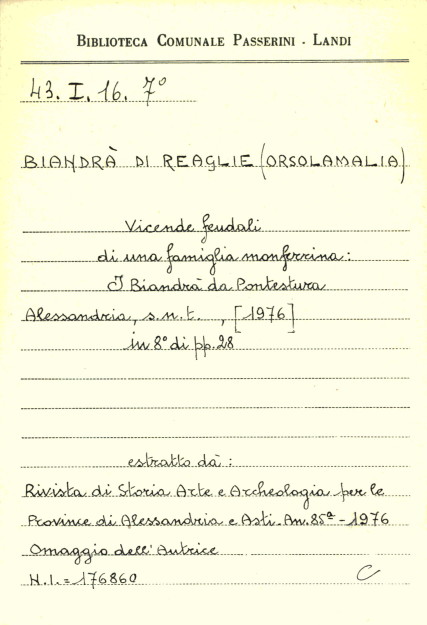 BIBLIOTECA COMUNALE PASSERINI - LANDI
43. I. 16. 7°
BIANDRÀ DI REAGLIE (ORSOLAMALIA)
Vicende feudali
di una famiglia monferrina:
I Biandrà da Pontestura
Alessandria, s.n.t. , [1976]
in 8° di pp. 28
estratto da:
Rivista di Storia Arte e Archeologia per le
Province di Alessandria e Asti. An. 85ª - 1976
Omaggio dell'Autrice
N.I. = 176860 C